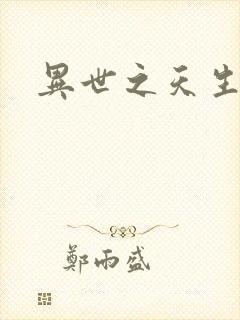 異世之天生
鄭雨盛